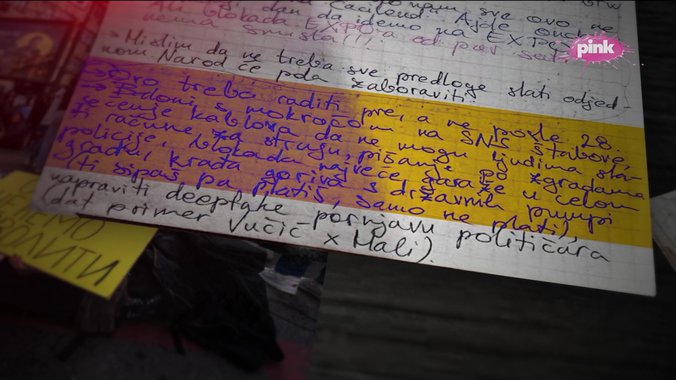 nam sve ovo, ne
dan Ćacilend. Ajde onda
da idemo na EXPO
Ali blokada EXPO-a od
nema smisla!!!
> Mislim da ne treba sve predloge slati odjed-
nom Narod će pola zaboraviti.
> Ovo treba raditi pre, a ne posle 28.
s mokročom na SNS štabove,
sečenje kablova da ne mogu ljudima sla-
ti račune za struju, pisanje po zgradama
policije, blokada najveće garaže u celom
gradu, krađa goriva s državnih pumpi
(ti sipaš pa platiš, samo ne platiš),
napraviti deepfake pornjavu političara
(dat primer Vučić x Mali).
pink
ОЛИТИ